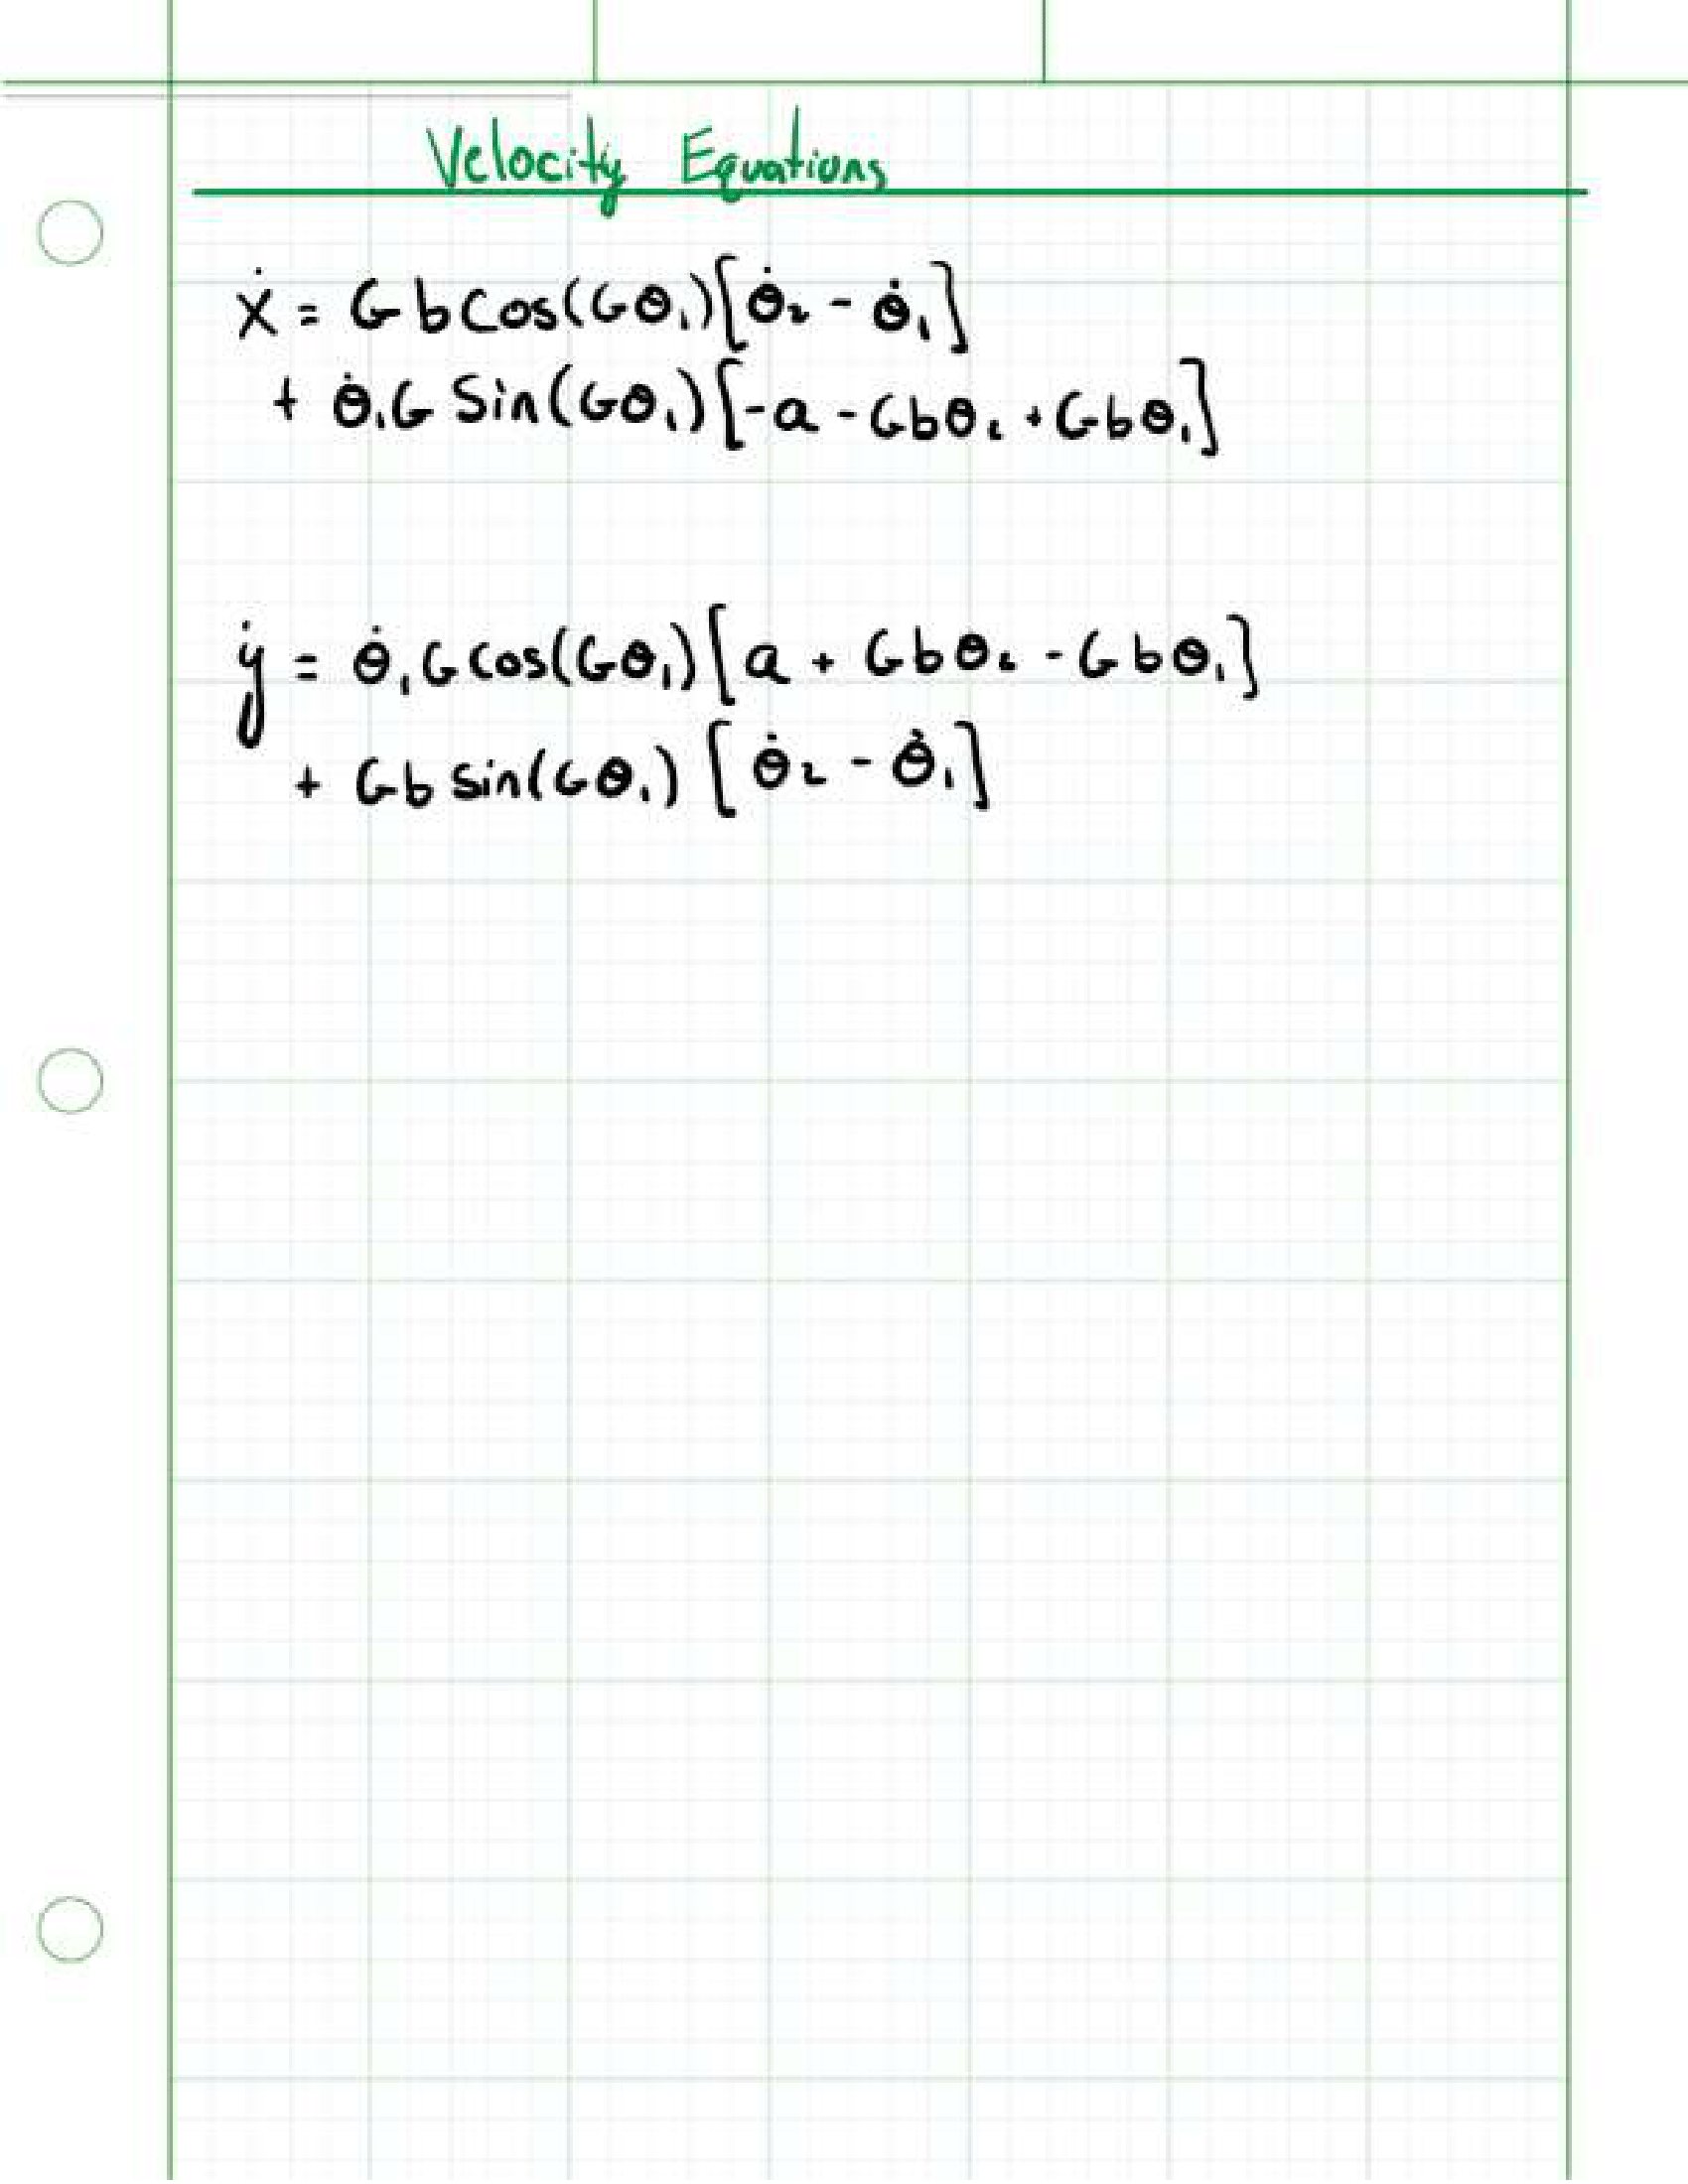 Velocity Equations
ẋ = G b Cos(Gθ₁)[θ̇₂ - θ̇₁]
+ θ̇₁G Sin(Gθ₁)[-a - Gbθ₂ + Gbθ₁]
ẏ = θ̇₁G cos(Gθ₁)[a + Gbθ₂ - Gbθ₁]
+ Gb sin(Gθ₁) [θ̇₂ - θ̇₁]